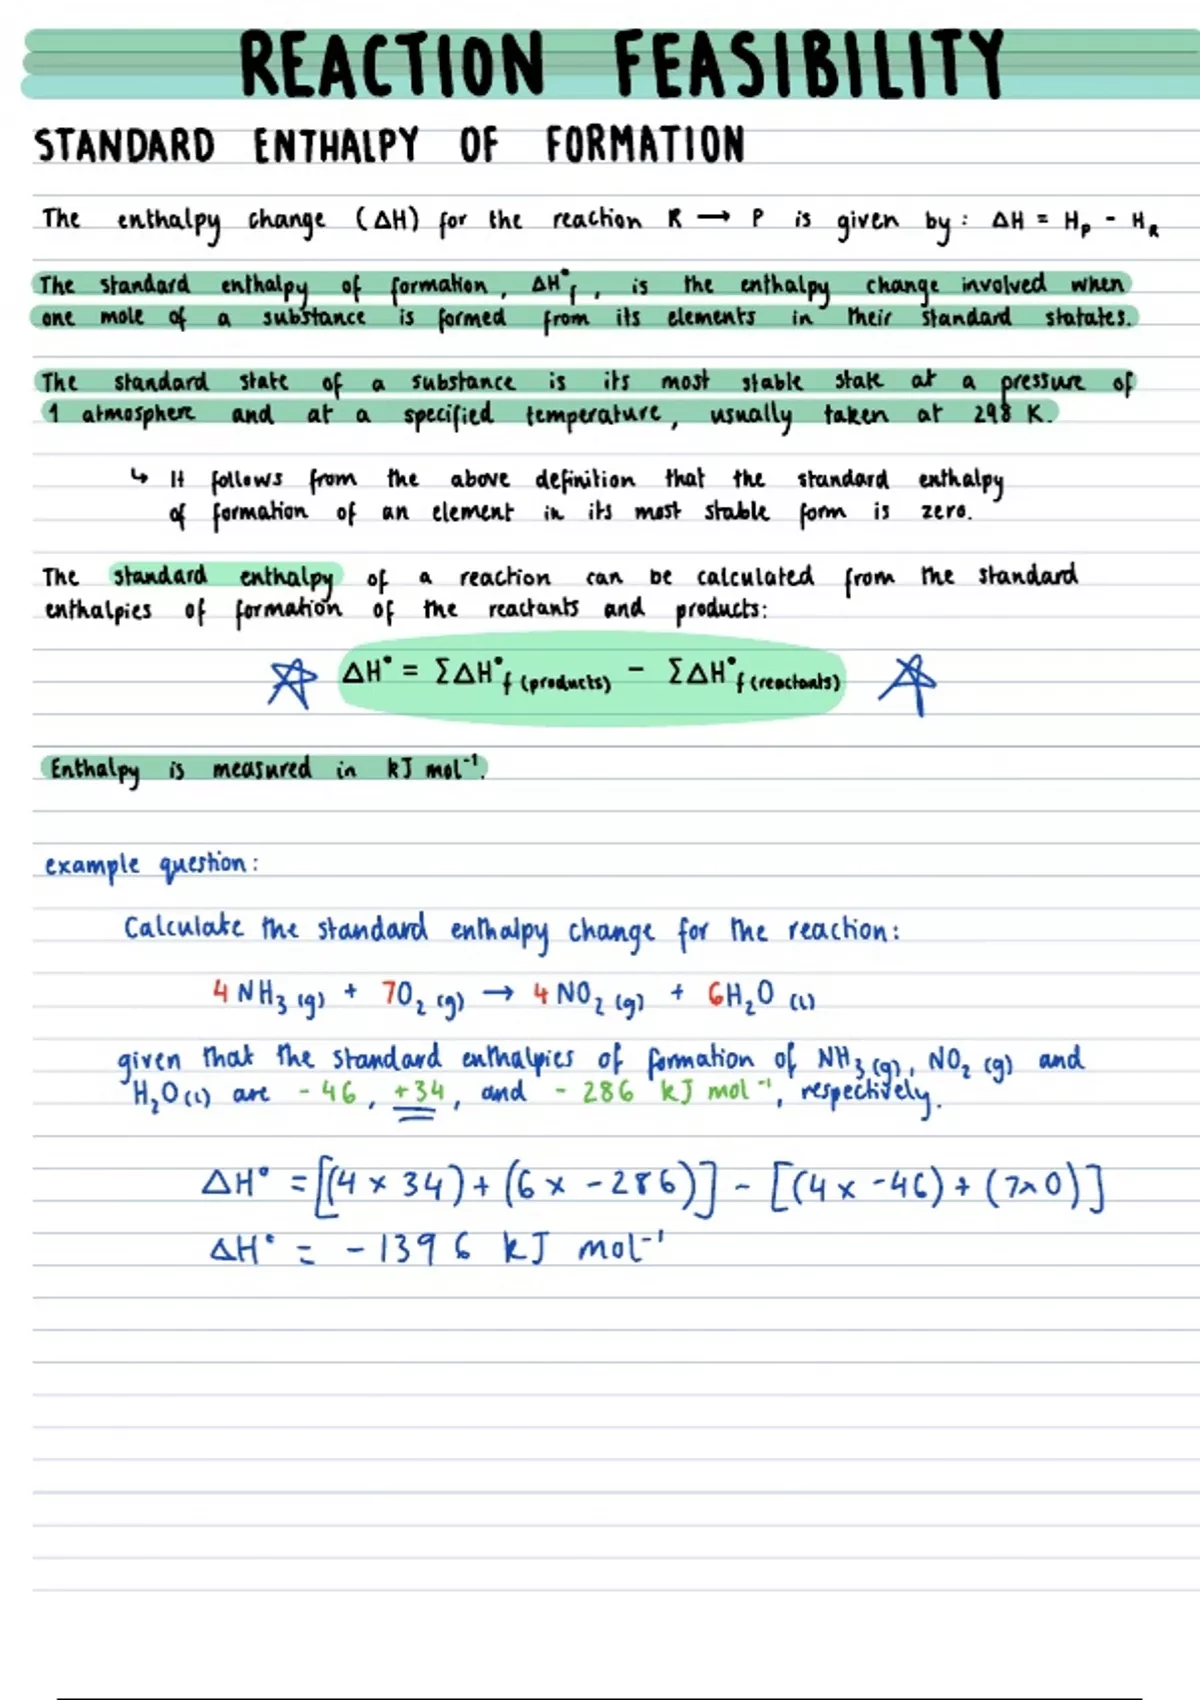 REACTION FEASIBILITY
STANDARD ENTHALPY OF FORMATION
The enthalpy change (ΔH) for the reaction R → P is given by: ΔH = Hₚ - H_R
The standard enthalpy of formation, ΔH°f, is the enthalpy change involved when
one mole of a substance is formed from its elements in their standard statates.
The standard state of a substance is its most stable state at a pressure of
1 atmosphere and at a specified temperature, usually taken at 298 K.
↳ It follows from the above definition that the standard enthalpy
of formation of an element in its most stable form is zero.
The standard enthalpy of a reaction can be calculated from the standard
enthalpies of formation of the reactants and products:
ΔH° = ΣΔH°f (products) - ΣΔH°f (reactants)
Enthalpy is measured in kJ mol⁻¹.
example question:
Calculate the standard enthalpy change for the reaction:
4 NH₃ (g) + 7O₂ (g) → 4 NO₂ (g) + 6H₂O (l)
given that the standard enthalpies of formation of NH₃ (g), NO₂ (g) and
H₂O (l) are -46, +34, and -286 kJ mol⁻¹, respectively.
ΔH° = [(4 × 34) + (6 × -286)] - [(4 × -46) + (7×0)]
ΔH° = -1396 kJ mol⁻¹